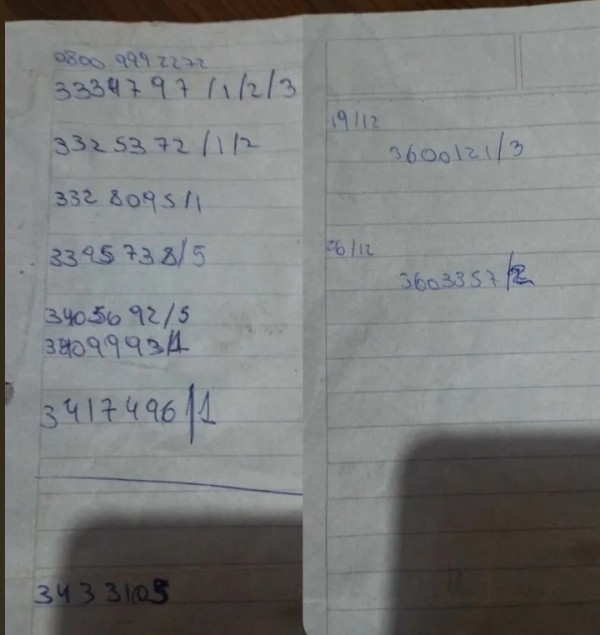 0800 999 2272
3334797/1/2/3
3325372/1/2
3328095/1
3395738/5
3405692/5
3409993/1
3417496/1
3433105
19/12
3600121/3
26/12
3603357/2